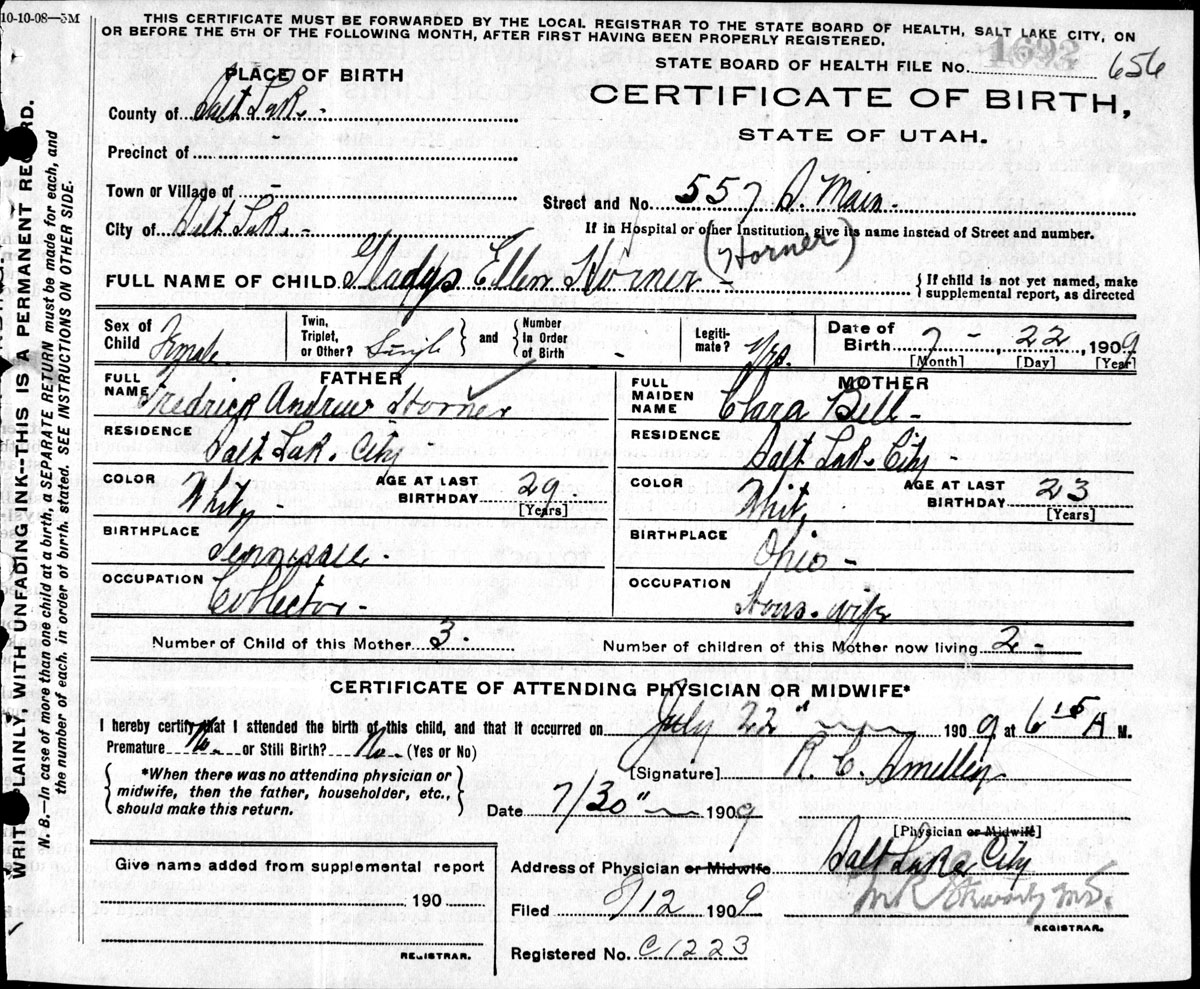 10-10-08—5M
THIS CERTIFICATE MUST BE FORWARDED BY THE LOCAL REGISTRAR TO THE STATE BOARD OF HEALTH, SALT LAKE CITY, ON
OR BEFORE THE 5TH OF THE FOLLOWING MONTH, AFTER FIRST HAVING BEEN PROPERLY REGISTERED.
1692
STATE BOARD OF HEALTH FILE No. 656
PLACE OF BIRTH
CERTIFICATE OF BIRTH,
STATE OF UTAH.
County of Salt Lake -
Precinct of -
Town or Village of -
Street and No. 557 S Main -
City of Salt Lake -
If in Hospital or other Institution, give its name instead of Street and number.
(Horner)
FULL NAME OF CHILD Gladys Ellen Horner -
If child is not yet named, make
supplemental report, as directed
Sex of Child Female
Twin, Triplet, or Other? Single
and
Number In Order of Birth -
Legiti- mate? Yes.
Date of Birth 7 - 22, 1909
[Month] [Day] [Year]
FATHER
FULL NAME Fredrick Andrew Horner
RESIDENCE Salt Lake City
COLOR White
AGE AT LAST BIRTHDAY 29 [Years]
BIRTHPLACE Tennessee -
OCCUPATION Collector -
MOTHER
FULL MAIDEN NAME Clara Bell -
RESIDENCE Salt Lake City
COLOR White
AGE AT LAST BIRTHDAY 23 [Years]
BIRTHPLACE Ohio -
OCCUPATION House-wife
Number of Child of this Mother 3.
Number of children of this Mother now living 2 -
CERTIFICATE OF ATTENDING PHYSICIAN OR MIDWIFE*
I hereby certify that I attended the birth of this child, and that it occurred on July 22" 1909 at 6 15 A M.
Premature No or Still Birth? No (Yes or No)
*When there was no attending physician or
midwife, then the father, householder, etc.,
should make this return.
[Signature] R. C. Smedley
Date 7/30" 1909
[Physician or Midwife]
Give name added from supplemental report
190
REGISTRAR.
Address of Physician or Midwife Salt Lake City
Filed 8/12 1909
M R Stewart M.D.
REGISTRAR.
Registered No. C1223
WRITE PLAINLY, WITH UNFADING INK--THIS IS A PERMANENT RECORD.
N. B.—In case of more than one child at a birth, a SEPARATE RETURN must be made for each, and
the number of each, in order of birth, stated. SEE INSTRUCTIONS ON OTHER SIDE.